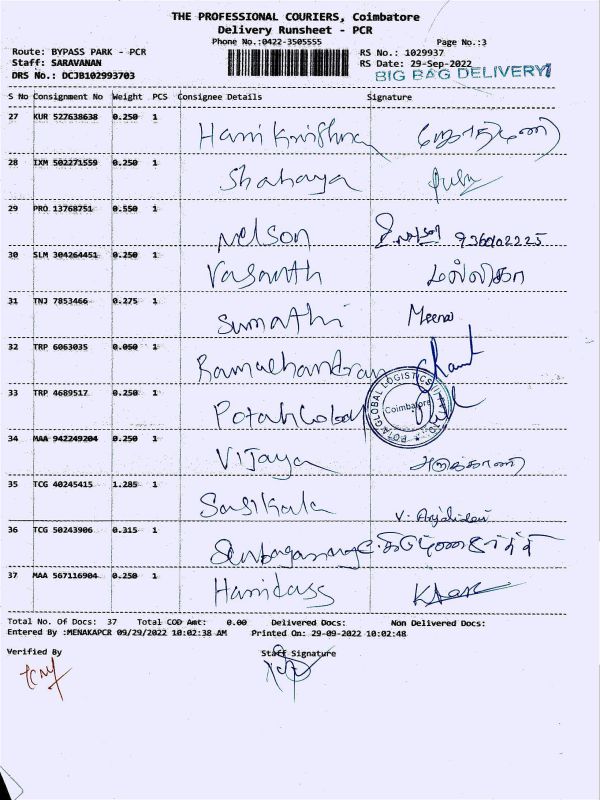 THE PROFESSIONAL COURIERS, Coimbatore
Delivery Runsheet - PCR
Phone No.:0422-3505555 Page No.:3
Route: BYPASS PARK - PCR RS No.: 1029937
Staff: SARAVANAN RS Date: 29-Sep-2022
DRS No.: DCJB102993703 BIG BAG DELIVERY
S No Consignment No Weight PCS Consignee Details Signature
27 KUR 527638638 0.250 1 Harikrishna
28 IXM 502271559 0.250 1 Shahaya
29 PRO 13768751 0.550 1 Nelson
30 SLM 304264451 0.250 1 Vasanth மல்லிகா
31 TNJ 7853466 0.275 1 Sumathi Meena
32 TRP 6063035 0.050 1 Ramachandran
33 TRP 4689517 0.250 1 Potah Global
POTA GLOBAL LOGISTICS
Coimbatore
34 MAA 942249204 0.250 1 Vijaya அருக்காணி
35 TCG 40245415 1.285 1 Sasikala
36 TCG 50243906 0.315 1
37 MAA 567116904 0.250 1 Haridass
Total No. Of Docs: 37 Total COD Amt: 0.00 Delivered Docs: Non Delivered Docs:
Entered By :MENAKAPCR 09/29/2022 10:02:38 AM Printed On: 29-09-2022 10:02:48
Verified By Staff Signature